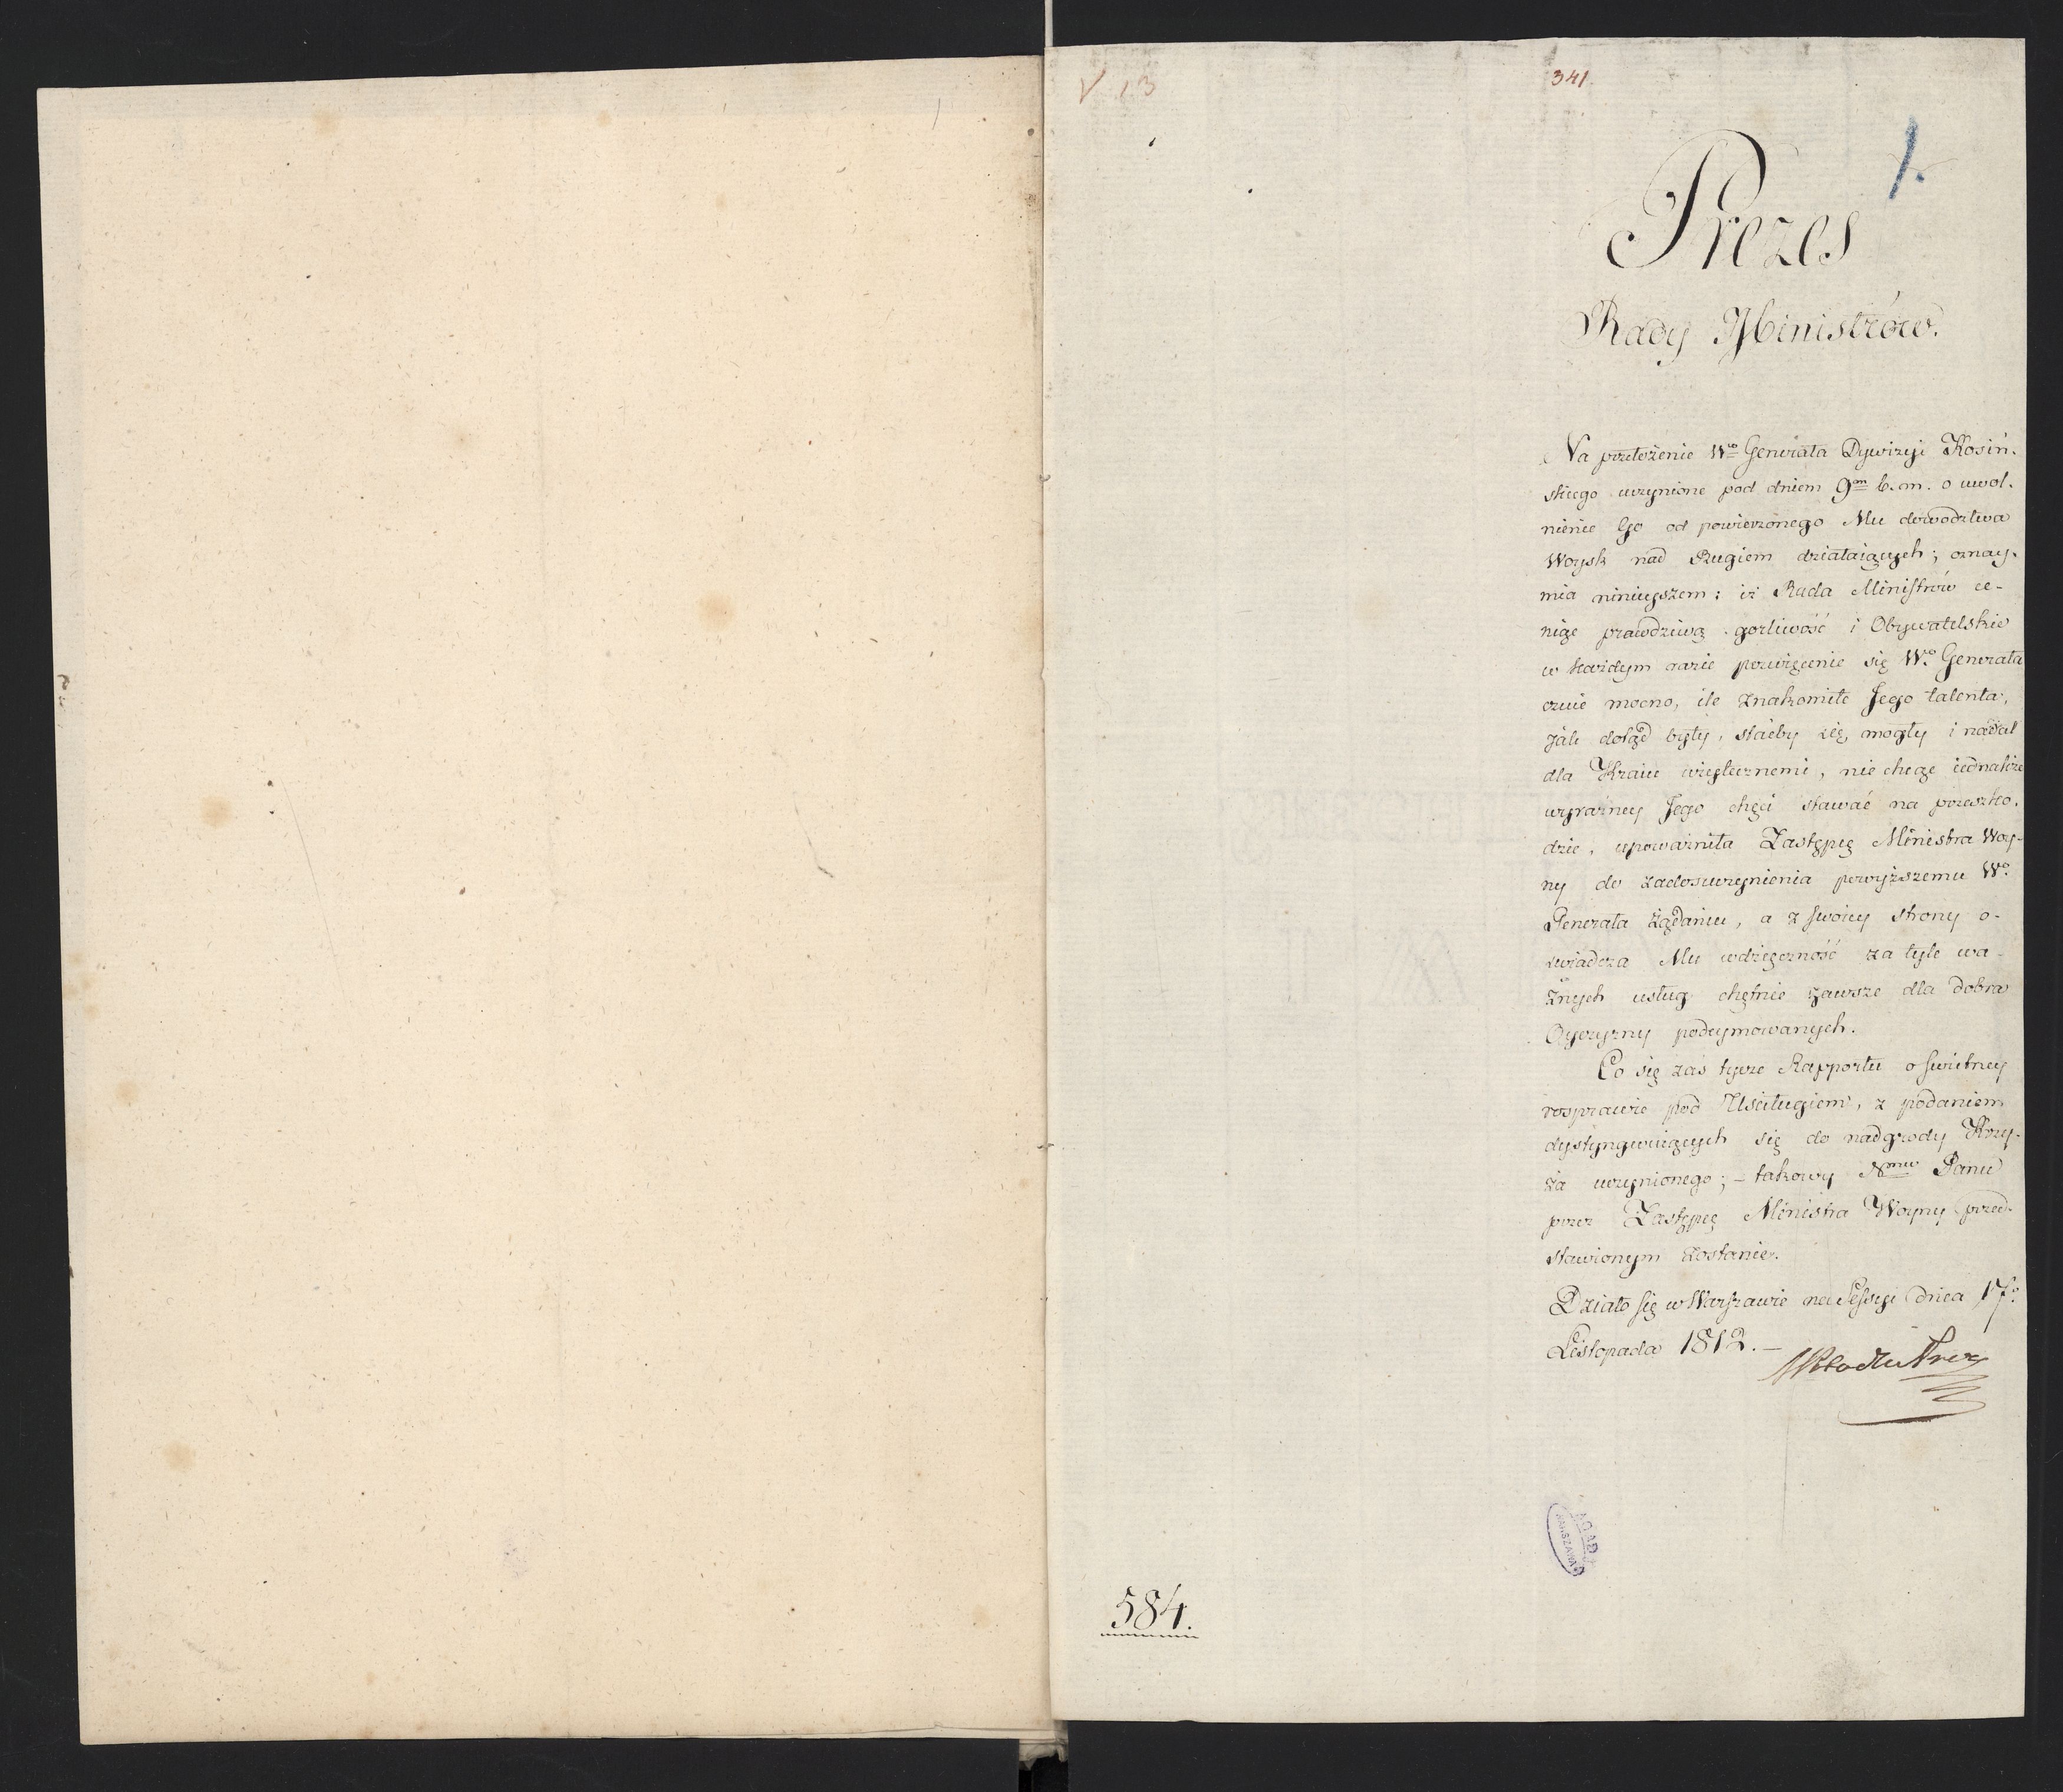 V 13
341.
1.
Prezes
Rady Ministrów.
Na przełożenie Wgo Generała Dywizyi Kosiń-
skiego uczynione pod dniem 9m b. m. o uwol-
nienie Go od powierzonego Mu dowodztwa
Woysk nad Bugiem działaiących; oznay-
mia ninieyszem: iż Rada Ministrów ce-
niąc prawdziwą gorliwość i Obywatelskie
w każdym razie poświęcenie się Wo Generała
czuie mocno, ile znakomite Jego talenta,
jak dotąd były, staćby się mogły i nadal
dla Kraiu użytecznemi, nie chcąc iednakże
wyraźney Jego chęci stawać na przeszko-
dzie, upoważniła Zastępcę Ministra Woy-
ny do zadosuczynienia powyższemu Wo
Generała żądaniu, a z swoiey strony o-
świadcza Mu wdzięczność za tyle wa-
żnych usług chętnie zawsze dla dobra
Oyczyzny podeymowanych.
Co się zaś tycze Rapportu o świetney
rosprawie pod Uściługiem, z podaniem
dystyngwuiących się do nadgrody Krzy-
ża uczynionego; – takowy Nmu Panu
przez Zastępcę Ministra Woyny przed-
stawionym zostanie.
Działo się w Warszawie na Sessyi dnia 17o
Listopada 1812. –
AGAD
WARSZAWA
584.